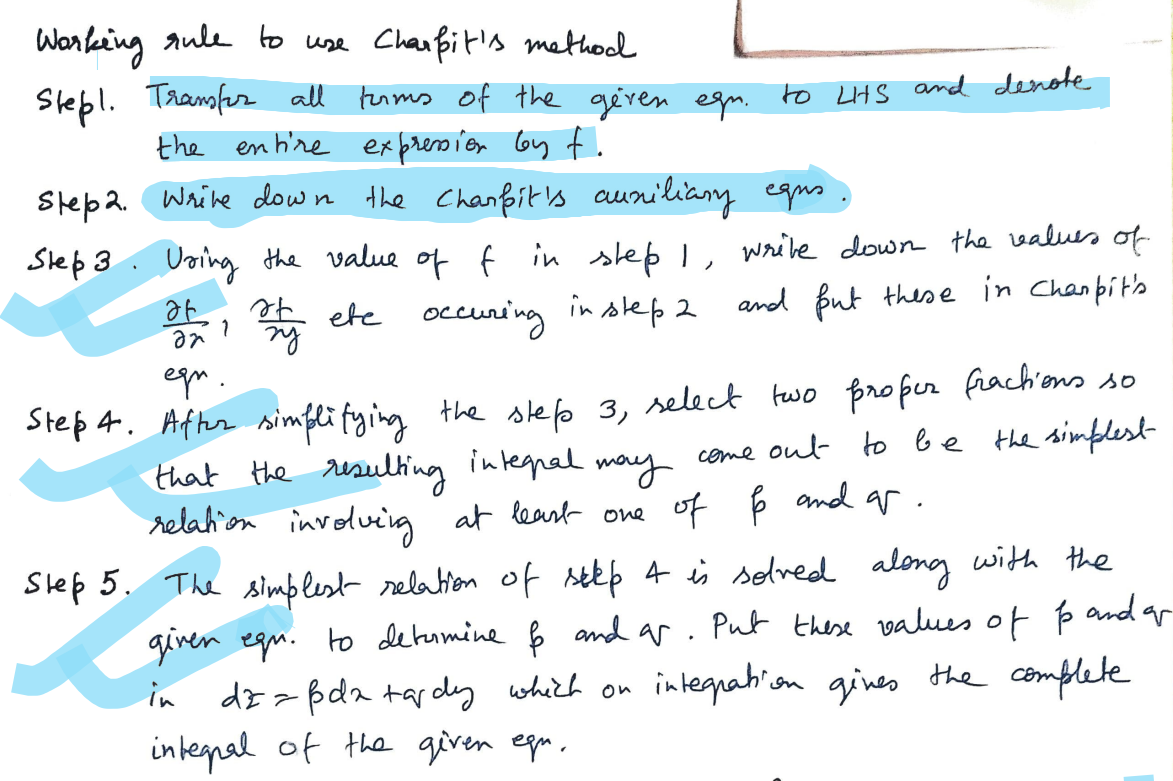 Working rule to use Charpit's method
Step1. Transfer all terms of the given eqn. to LHS and denote
the entire expression by f.
Step2. Write down the Charpit's auxiliary eqns.
Step 3. Using the value of f in step 1, write down the values of
∂f/∂x, ∂f/∂y etc occuring in step 2 and put these in Charpit's
eqn.
Step 4. After simplifying the step 3, select two proper fractions so
that the resulting integral may come out to be the simplest
relation involving at least one of p and q.
Step 5. The simplest relation of step 4 is solved along with the
given eqn. to determine p and q. Put these values of p and q
in dz = pdx + qdy which on integration gives the complete
integral of the given eqn.